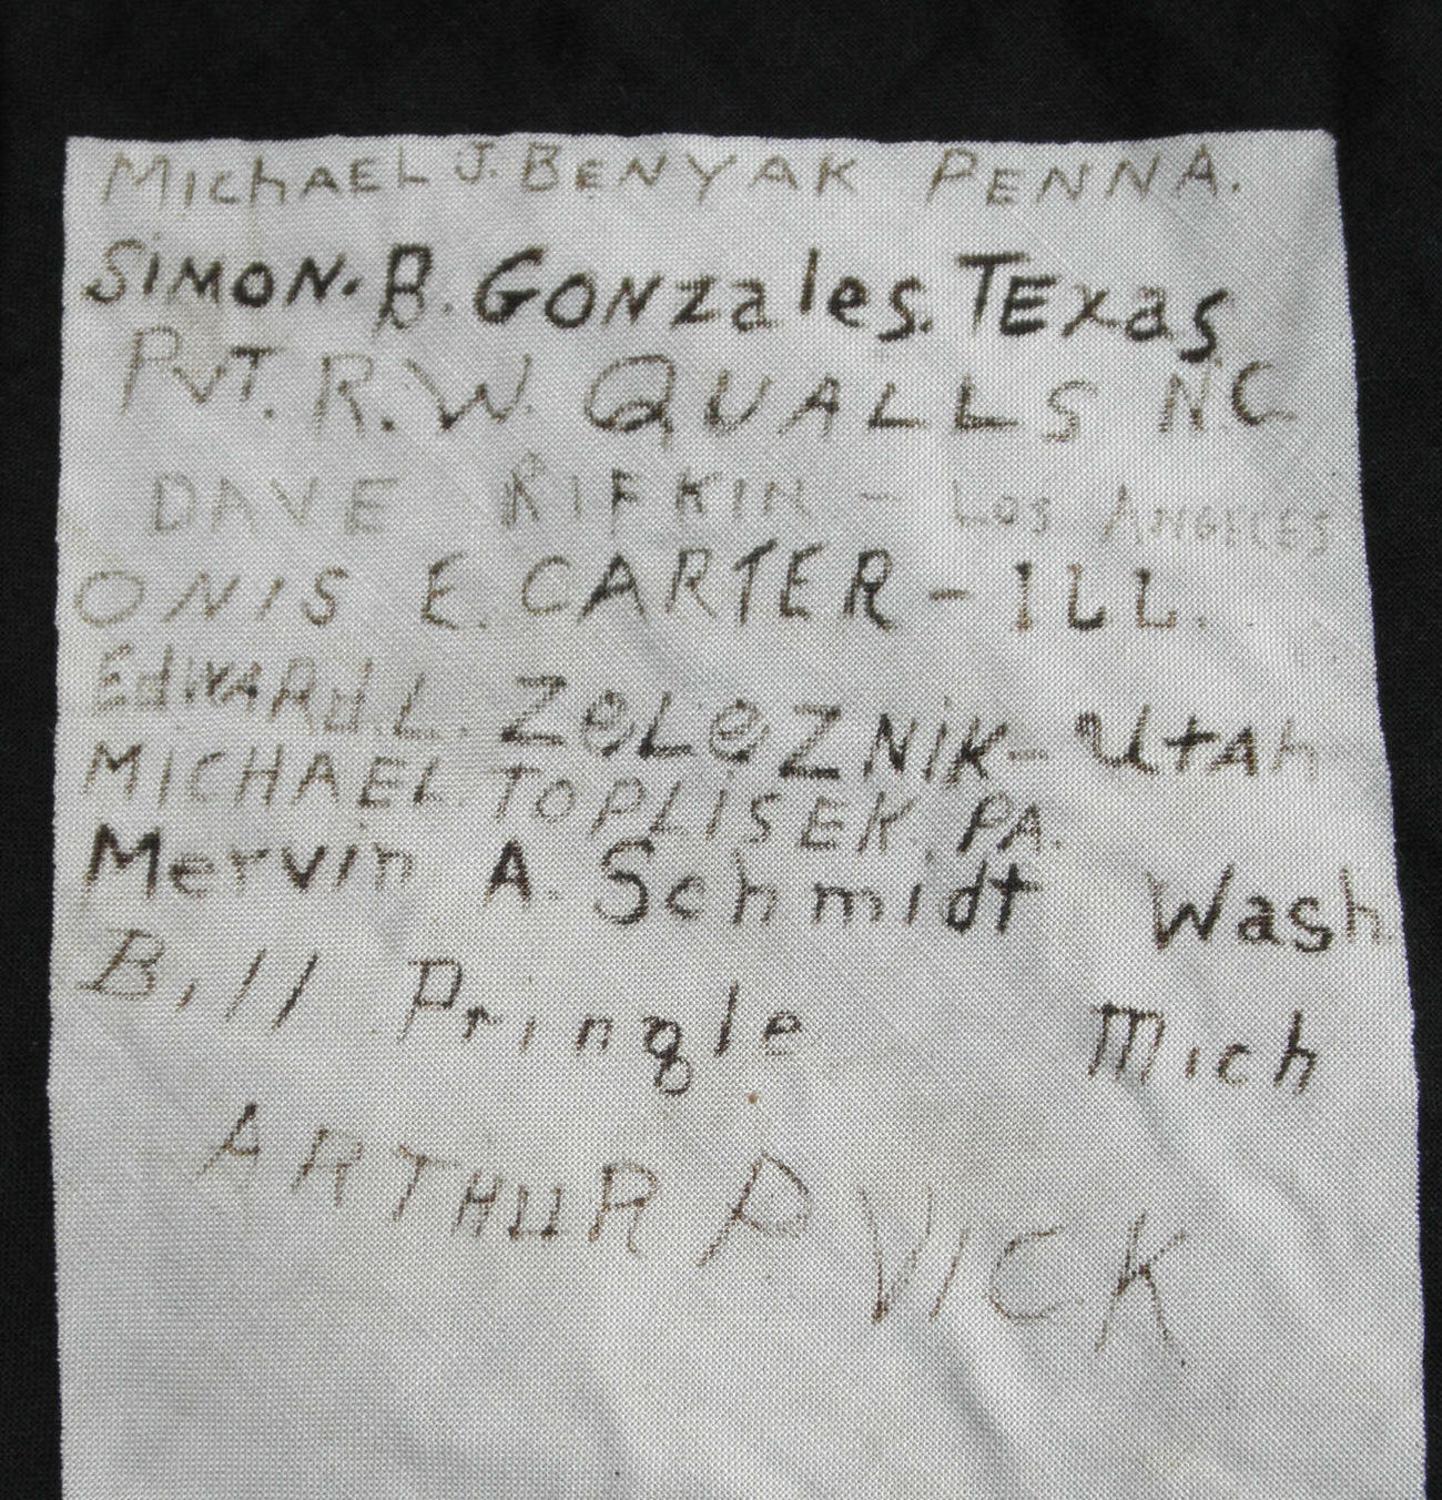 MichAEL J. BENYAK PENNA.
SiMON. B. GONzales. TExas
PVT. R. W. QUALLS N.C
DAVE RIFKIN - Los ANGELES
ONIS E. CARTER - ILL.
EdWARd. L. ZeLeZNiK - UtAh
MICHAEL TOPLISEK PA.
Mervin A. Schmidt Wash
Bill Pringle Mich
ARTHUR P VICK